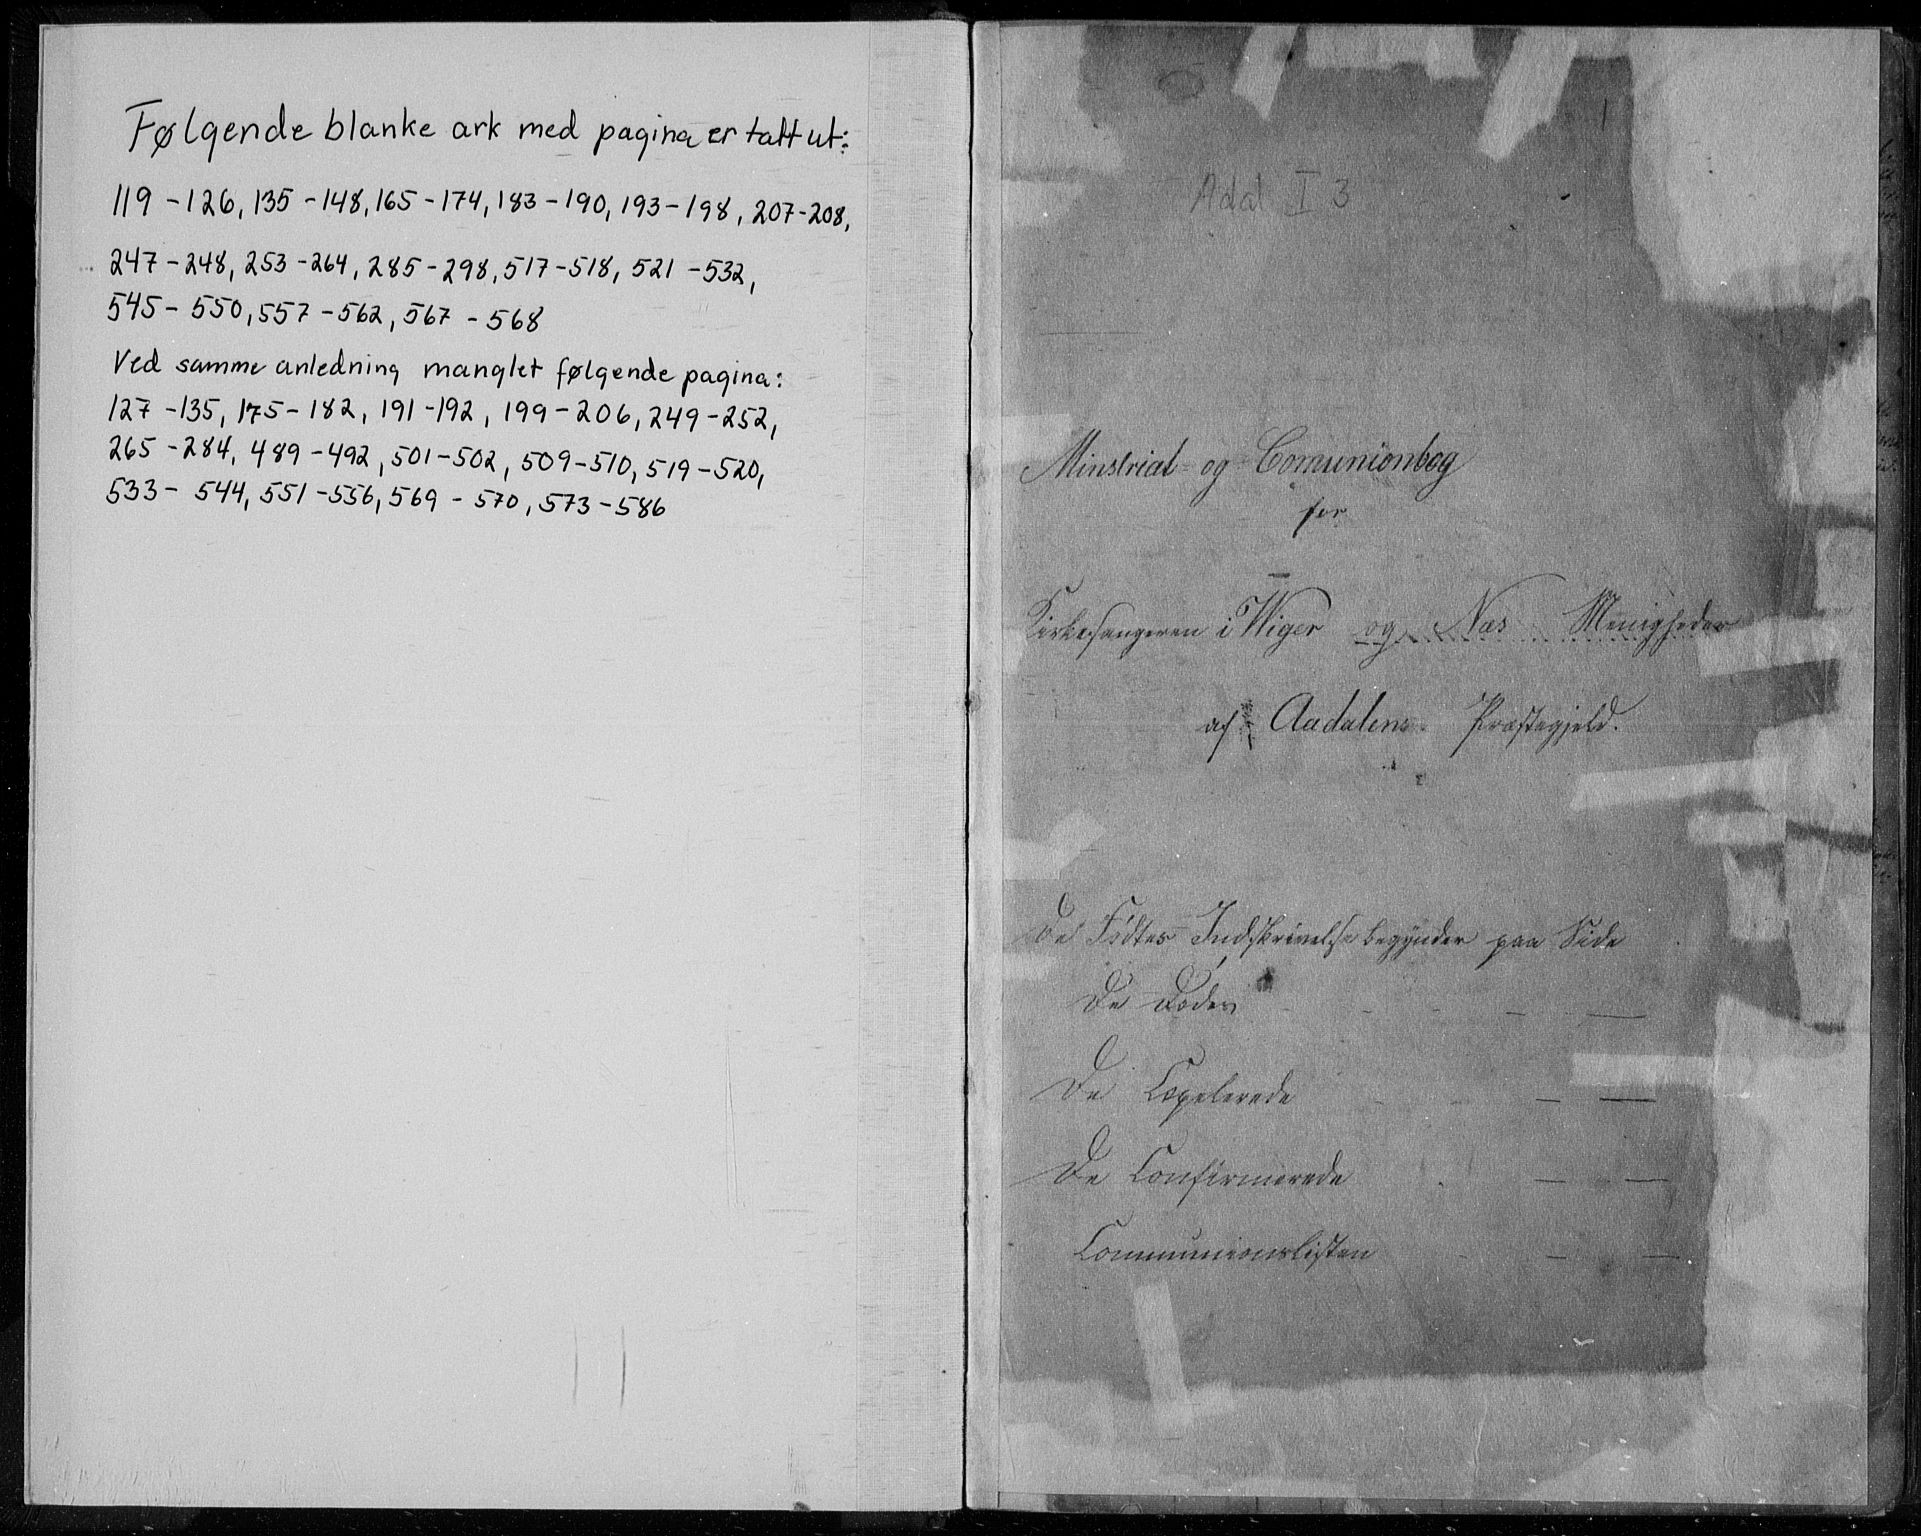 Følgende blanke ark med pagina er tatt ut:
119 - 126, 135 - 148, 165 - 174, 183 - 190, 193 - 198, 207 - 208,
247 - 248, 253 - 264, 285 - 298, 517 - 518, 521 - 532,
545 - 550, 557 - 562, 567 - 568
Ved samme anledning manglet følgende pagina:
127 - 135, 175 - 182, 191 - 192, 199 - 206, 249 - 252,
265 - 284, 489 - 492, 501 - 502, 509 - 510, 519 - 520,
533 - 544, 551 - 556, 569 - 570, 573 - 586
1
Adal I 3
Minstrial- og Comunionbog
for
Kirkesangeren i Wiger og Næs Menigheder
af Aadalens Præstegjeld.
De Fødtes Indskrivelse begynder paa Side
De Dødes - - - - —
De Copelerede - - - —
De Confirmerede - - —
Communionslisten - - —